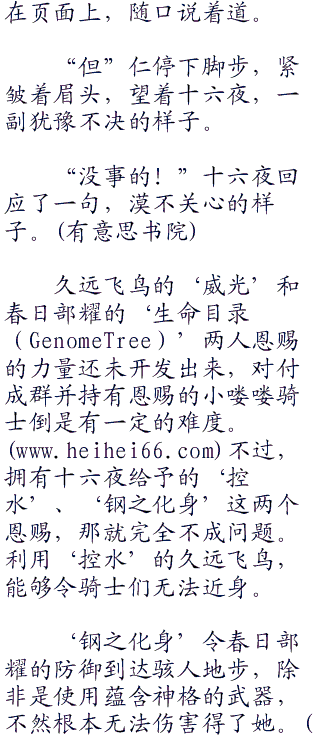 在页面上，随口说着道。
“但”仁停下脚步，紧
皱着眉头，望着十六夜，一
副犹豫不决的样子。
“没事的！”十六夜回
应了一句，漠不关心的样
子。(有意思书院)
久远飞鸟的‘威光’和
春日部耀的‘生命目录
（GenomeTree）’两人恩赐
的力量还未开发出来，对付
成群并持有恩赐的小喽喽骑
士倒是有一定的难度。
(www.heihei66.com)不过，
拥有十六夜给予的‘控
水’、‘钢之化身’这两个
恩赐，那就完全不成问题。
利用‘控水’的久远飞鸟，
能够令骑士们无法近身。
‘钢之化身’令春日部
耀的防御到达骇人地步，除
非是使用蕴含神格的武器，
不然根本无法伤害得了她。(